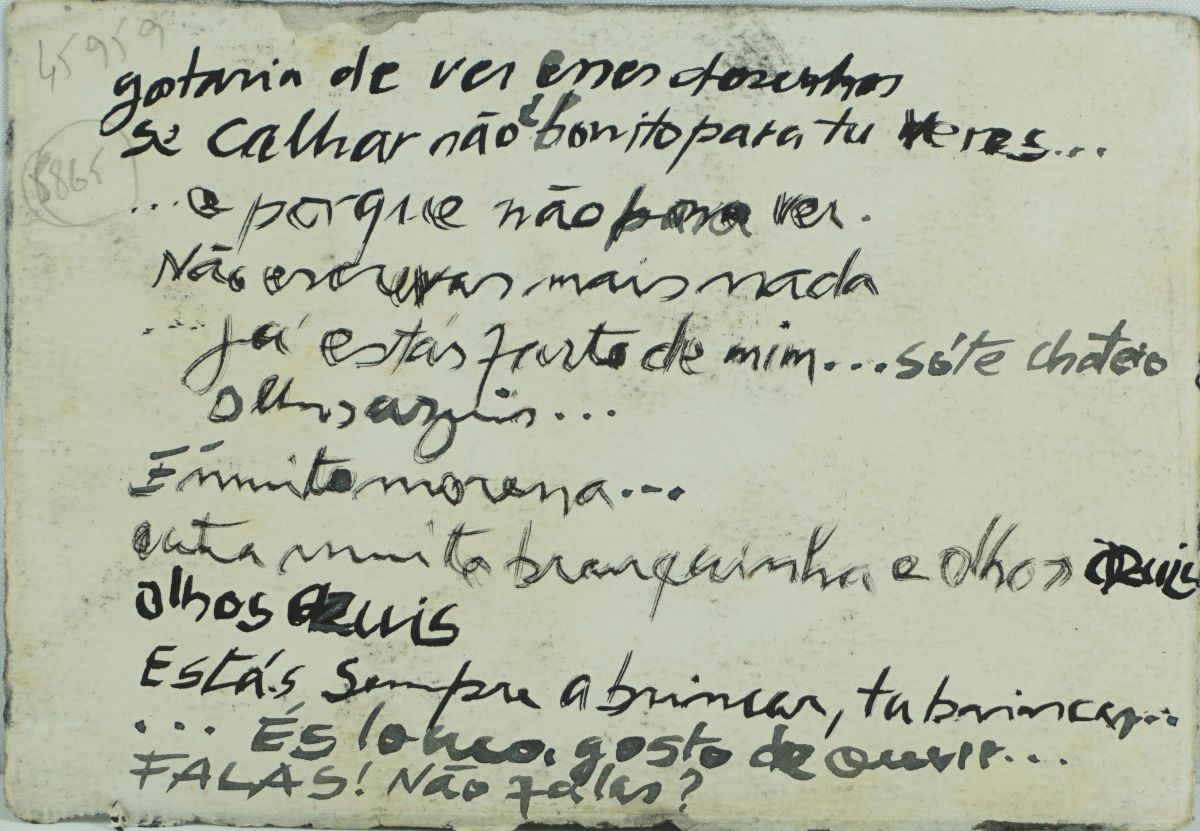 45959
gostaria de ver esses desenhos
se calhar não é bonito para tu veres...
8865
...e porque não para ver.
Não escrevas mais nada
...já estás farto de mim... só te chateio
olhos azuis...
É muito morena...
muito branquinha e olhos azuis
olhos azuis
Estás sempre a brincar, tu brincas...
... És louco, gosto de ouvir...
FALAS! Não falas?